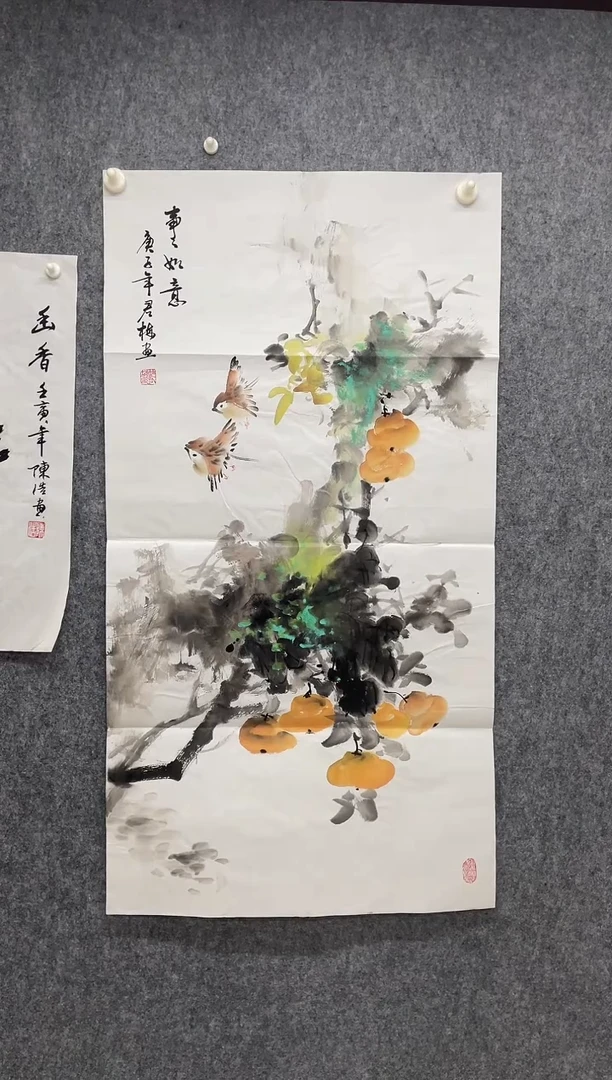 事々如意
庚子年君梅画
幽香
壬寅年陳浩画